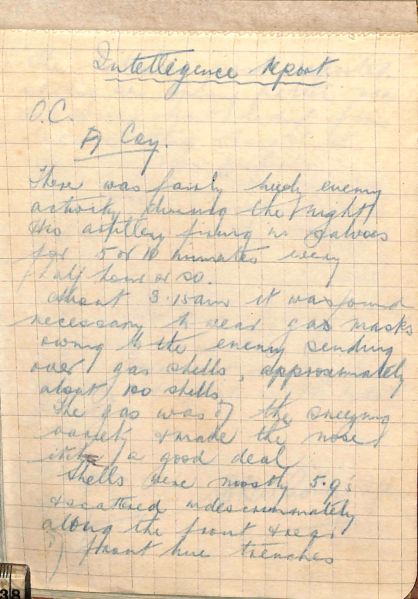 Intelligence report.
O.C.
A Coy.
There was fairly lively enemy
activity during the night
His artillery firing in salvoes
for 5 or 10 minutes every
half hour or so.
About 3.15am it was found
necessary to wear gas masks
owing to the enemy sending
over gas shells, approximately
about 100 shells.
The gas was of the sneezing
variety & made the nose
itch a good deal
Shells were mostly 5.9s
& scattered indescriminately
along the front &
front line trenches
38